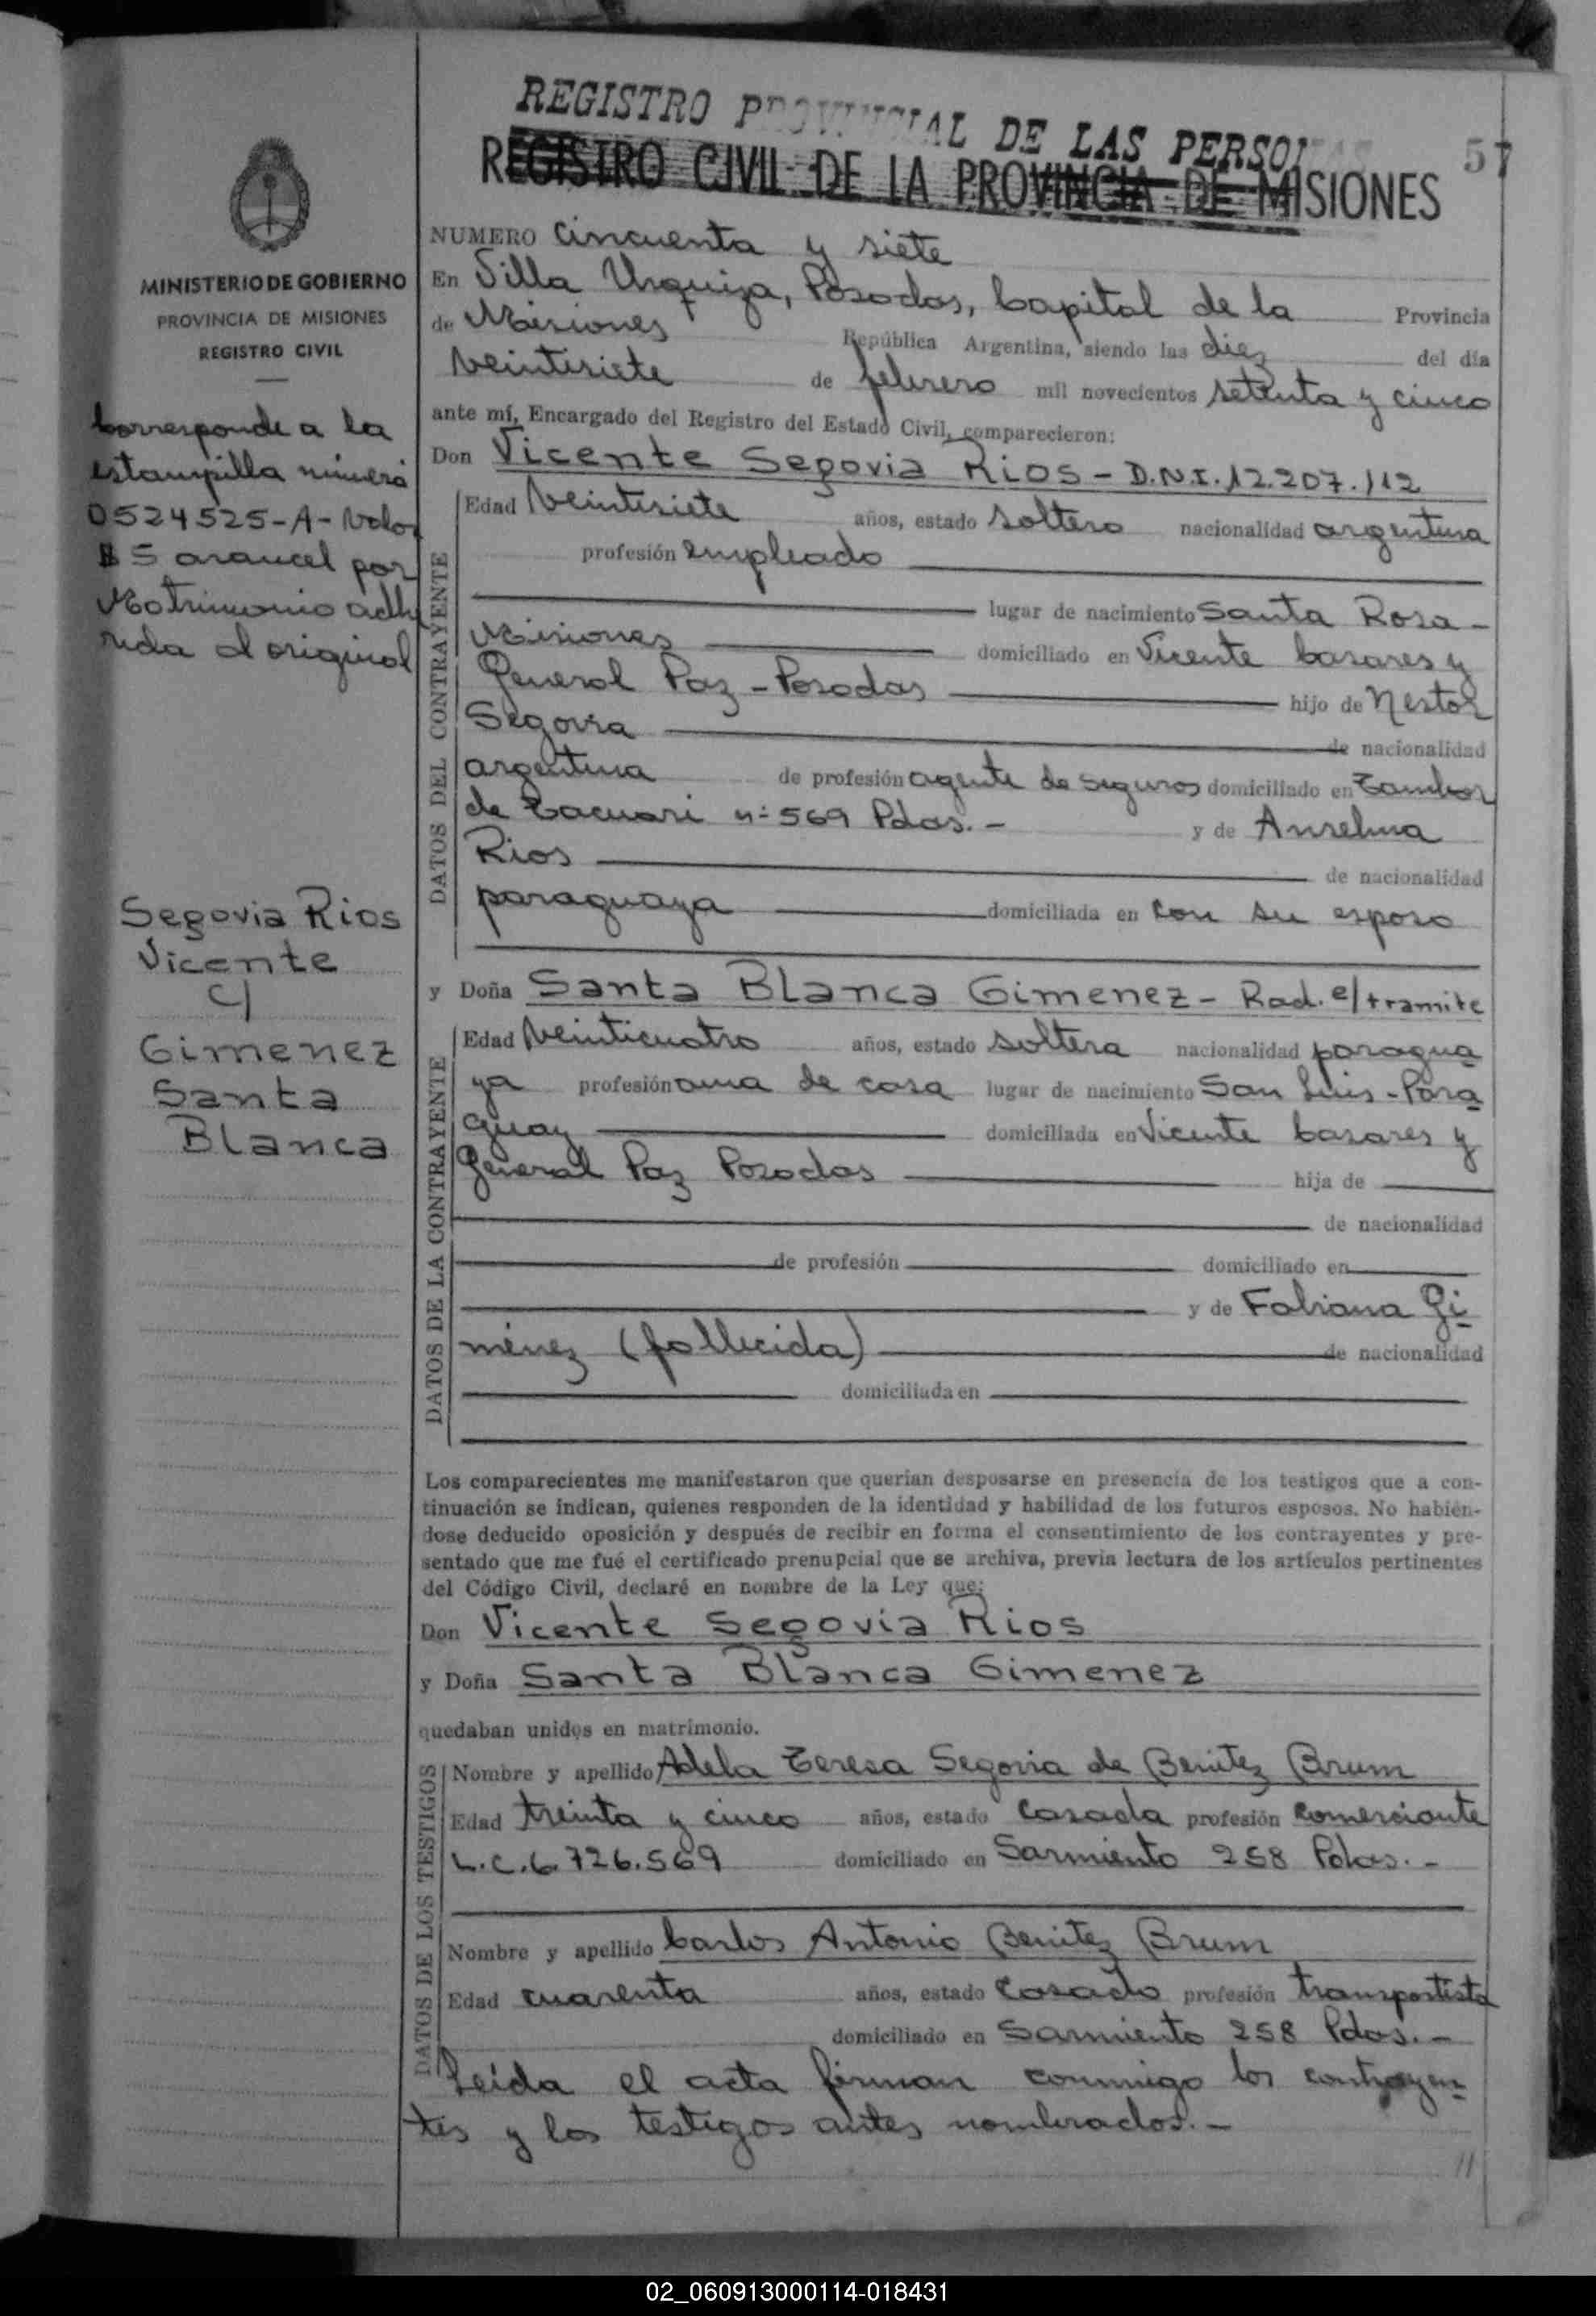 REGISTRO PROVINCIAL DE LAS PERSONAS
REGISTRO CIVIL DE LA PROVINCIA DE MISIONES
57
MINISTERIO DE GOBIERNO
PROVINCIA DE MISIONES
REGISTRO CIVIL
Corresponde a la
estampilla número
0524525-A-Valor
$ 5 arancel por
Matrimonio adhe
rida al original
Segovia Rios
Vicente
c/
Gimenez
Santa
Blanca
NUMERO Cincuenta y siete
En Villa Urquiza, Posadas, Capital de la Provincia
de Misiones República Argentina, siendo las diez del día
Veintisiete de febrero mil novecientos setenta y cinco
ante mí, Encargado del Registro del Estado Civil, comparecieron:
Don Vicente Segovia Rios - D.N.I. 12.207.112
DATOS DEL CONTRAYENTE
Edad Veintisiete años, estado soltero nacionalidad argentina
profesión empleado
lugar de nacimiento Santa Rosa -
Misiones domiciliado en Vicente Casares y
General Paz - Posadas hijo de Nestor
Segovia de nacionalidad
argentina de profesión agente de seguros domiciliado en Tambor
de Tacuari nº 569 Pdas. - y de Anselma
Rios de nacionalidad
paraguaya domiciliada en con su esposo
y Doña Santa Blanca Gimenez - Rad. e/tramite
DATOS DE LA CONTRAYENTE
Edad Veinticuatro años, estado soltera nacionalidad paragua
ya profesión ama de casa lugar de nacimiento San Luis - Para
guay domiciliada en Vicente Casares y
General Paz Posadas hija de
de nacionalidad
de profesión domiciliado en
y de Fabiana Gi
ménez (fallecida) de nacionalidad
domiciliada en
Los comparecientes me manifestaron que querían desposarse en presencia de los testigos que a con-
tinuación se indican, quienes responden de la identidad y habilidad de los futuros esposos. No habién-
dose deducido oposición y después de recibir en forma el consentimiento de los contrayentes y pre-
sentado que me fué el certificado prenupcial que se archiva, previa lectura de los artículos pertinentes
del Código Civil, declaré en nombre de la Ley que:
Don Vicente Segovia Rios
y Doña Santa Blanca Gimenez
quedaban unidos en matrimonio.
DATOS DE LOS TESTIGOS
Nombre y apellido Adela Teresa Segovia de Benitez Brum
Edad treinta y cinco años, estado casada profesión comerciante
L.C. 6.726.569 domiciliado en Sarmiento 258 Pdas. -
Nombre y apellido Carlos Antonio Benitez Brum
Edad cuarenta años, estado casado profesión transportista
domiciliado en Sarmiento 258 Pdas. -
Leída el acta firman conmigo los contrayen
tes y los testigos antes nombrados. -
02_060913000114-018431